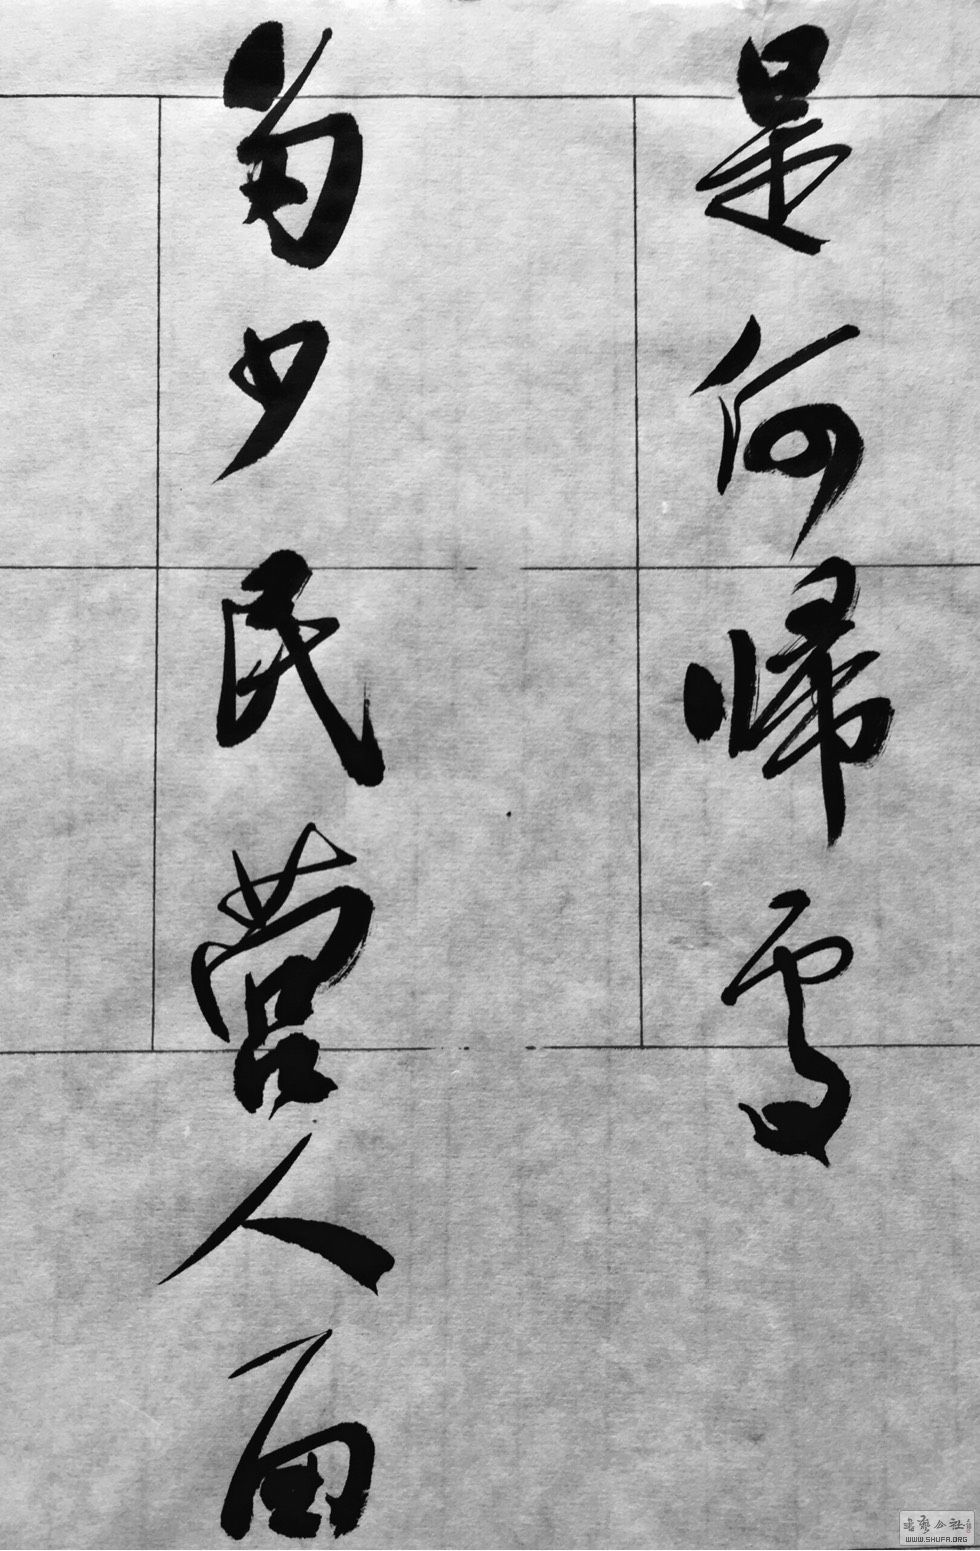 是何歸雪
句少民營人百
書藝公社
WWW.SHUFA.ORG